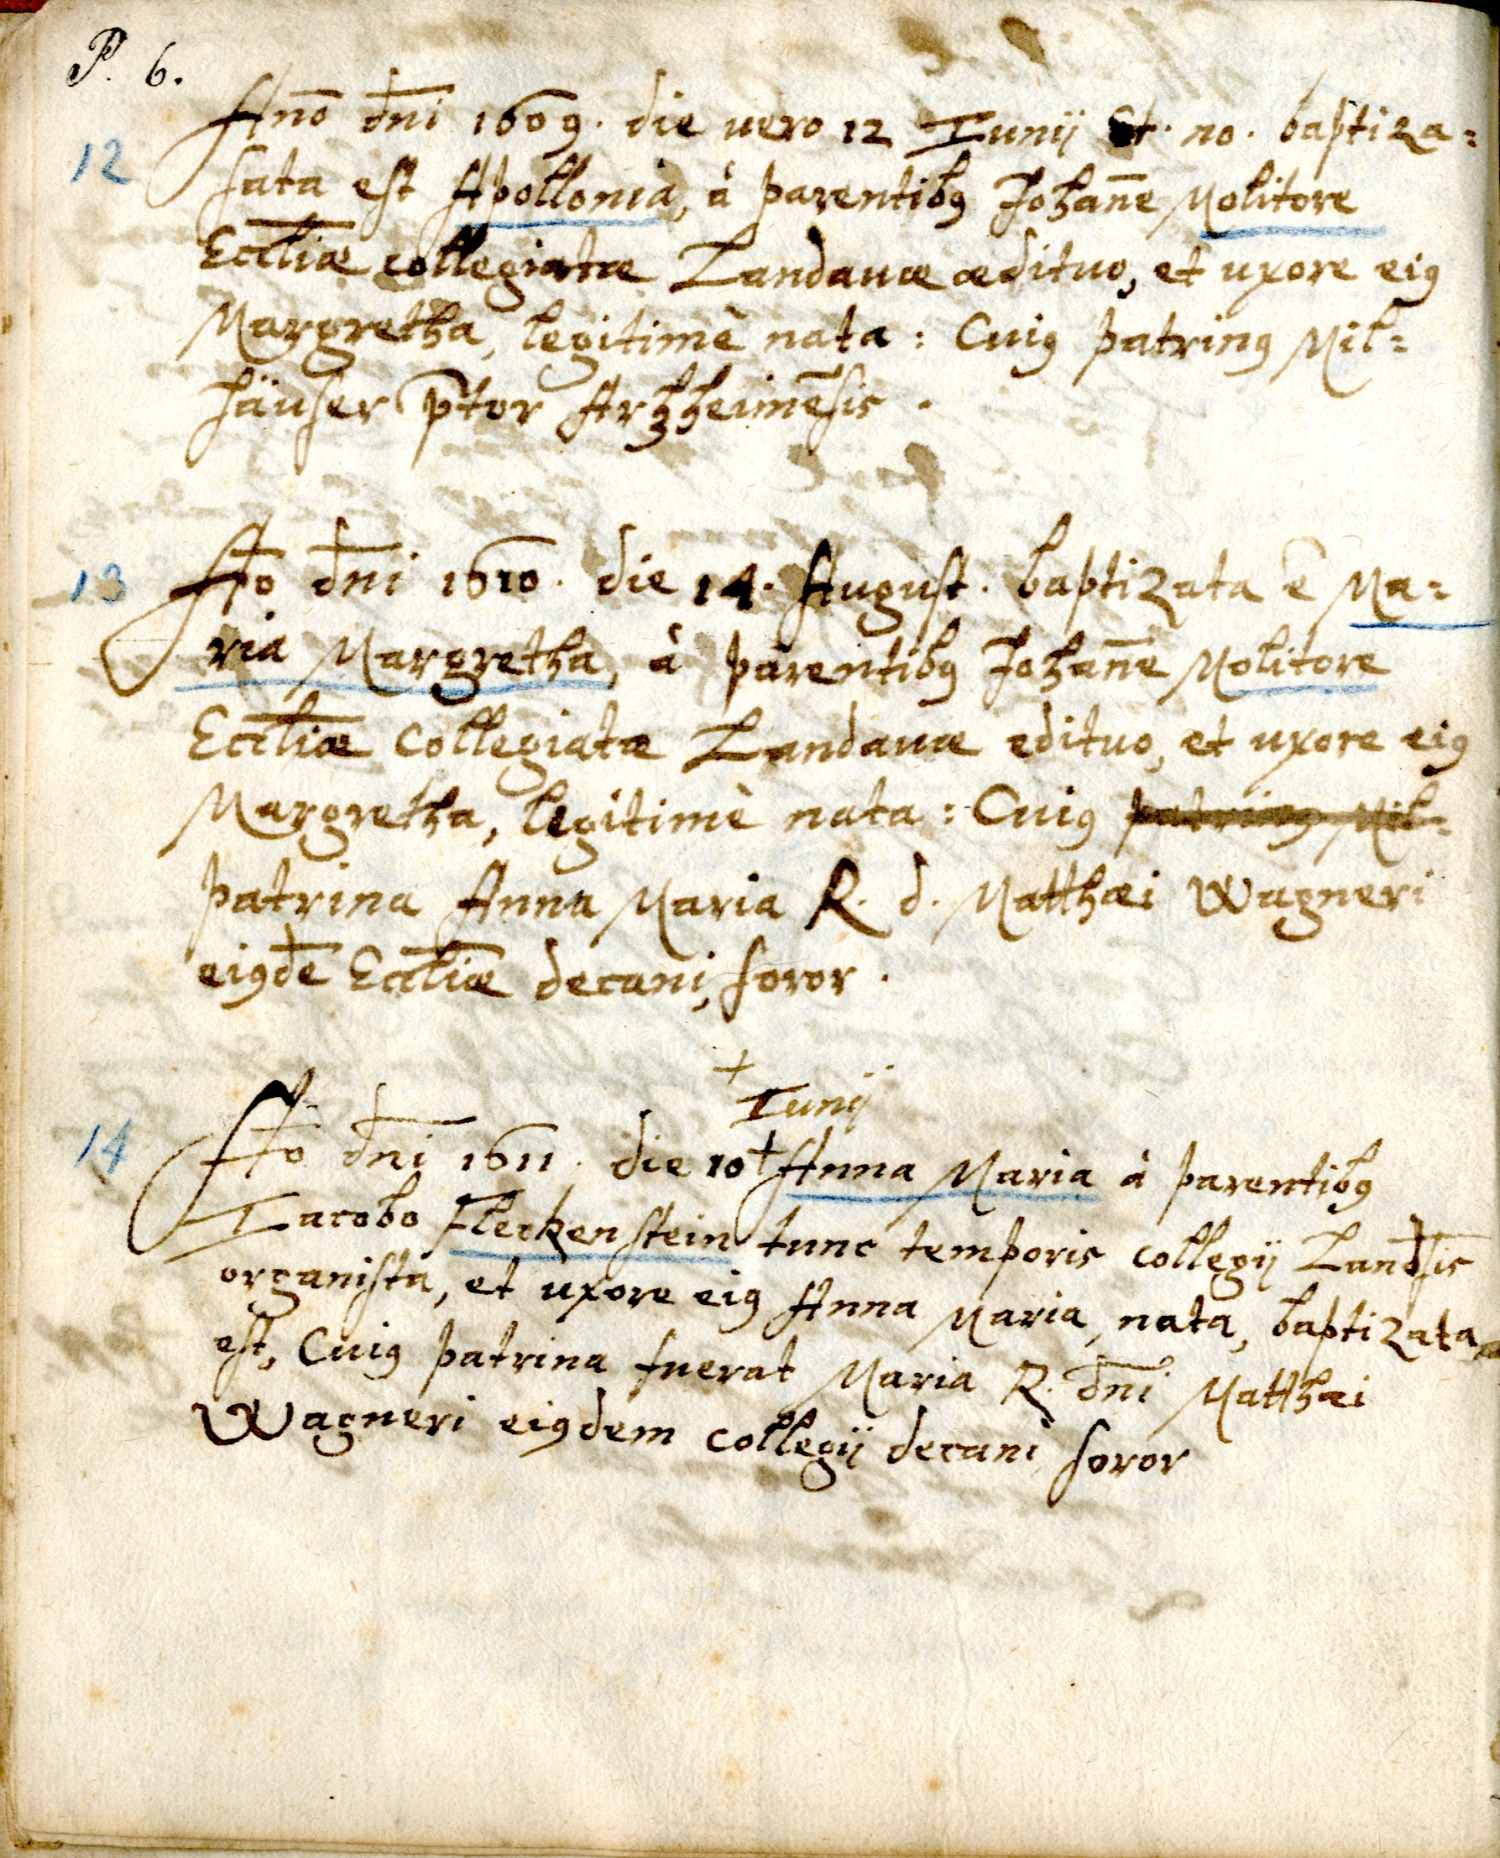 P. 6.
12
Añō dñi 1609. die vero 12 Iunij st. no. baptiza=
sata est Apollonia, à parentibꝯ Johañe Molitore
Eccliæ collegiatæ Landauæ ædituo, et uxore eiꝯ
Margretha, legitimè nata : Cuiꝯ patrinꝯ Mil=
häuser p̄tor Arzheimēsis .
13
Aō dñi 1610. die 14. August. baptizata ē Ma=
ria Margretha, à parentibꝯ Johañe Molitore
Eccliæ collegiatæ Landauæ edituo, et uxore eiꝯ
Margretha, legitimè nata : Cuiꝯ patrinꝯ Mil=
patrina Anna Maria R. d. Matthæi Wagneri
eiꝯdē Eccliæ decani, soror .
+
Iunij
14
Aō dñi 1611. die 10 + Anna Maria à parentibꝯ
Iacobo Fleckenstein tunc temporis collegij Landsis
organista, et uxore eiꝯ Anna Maria, nata, baptizata
est, Cuiꝯ patrina fuerat Maria R. dñi Matthæi
Wagneri eiꝯdem collegij decani soror